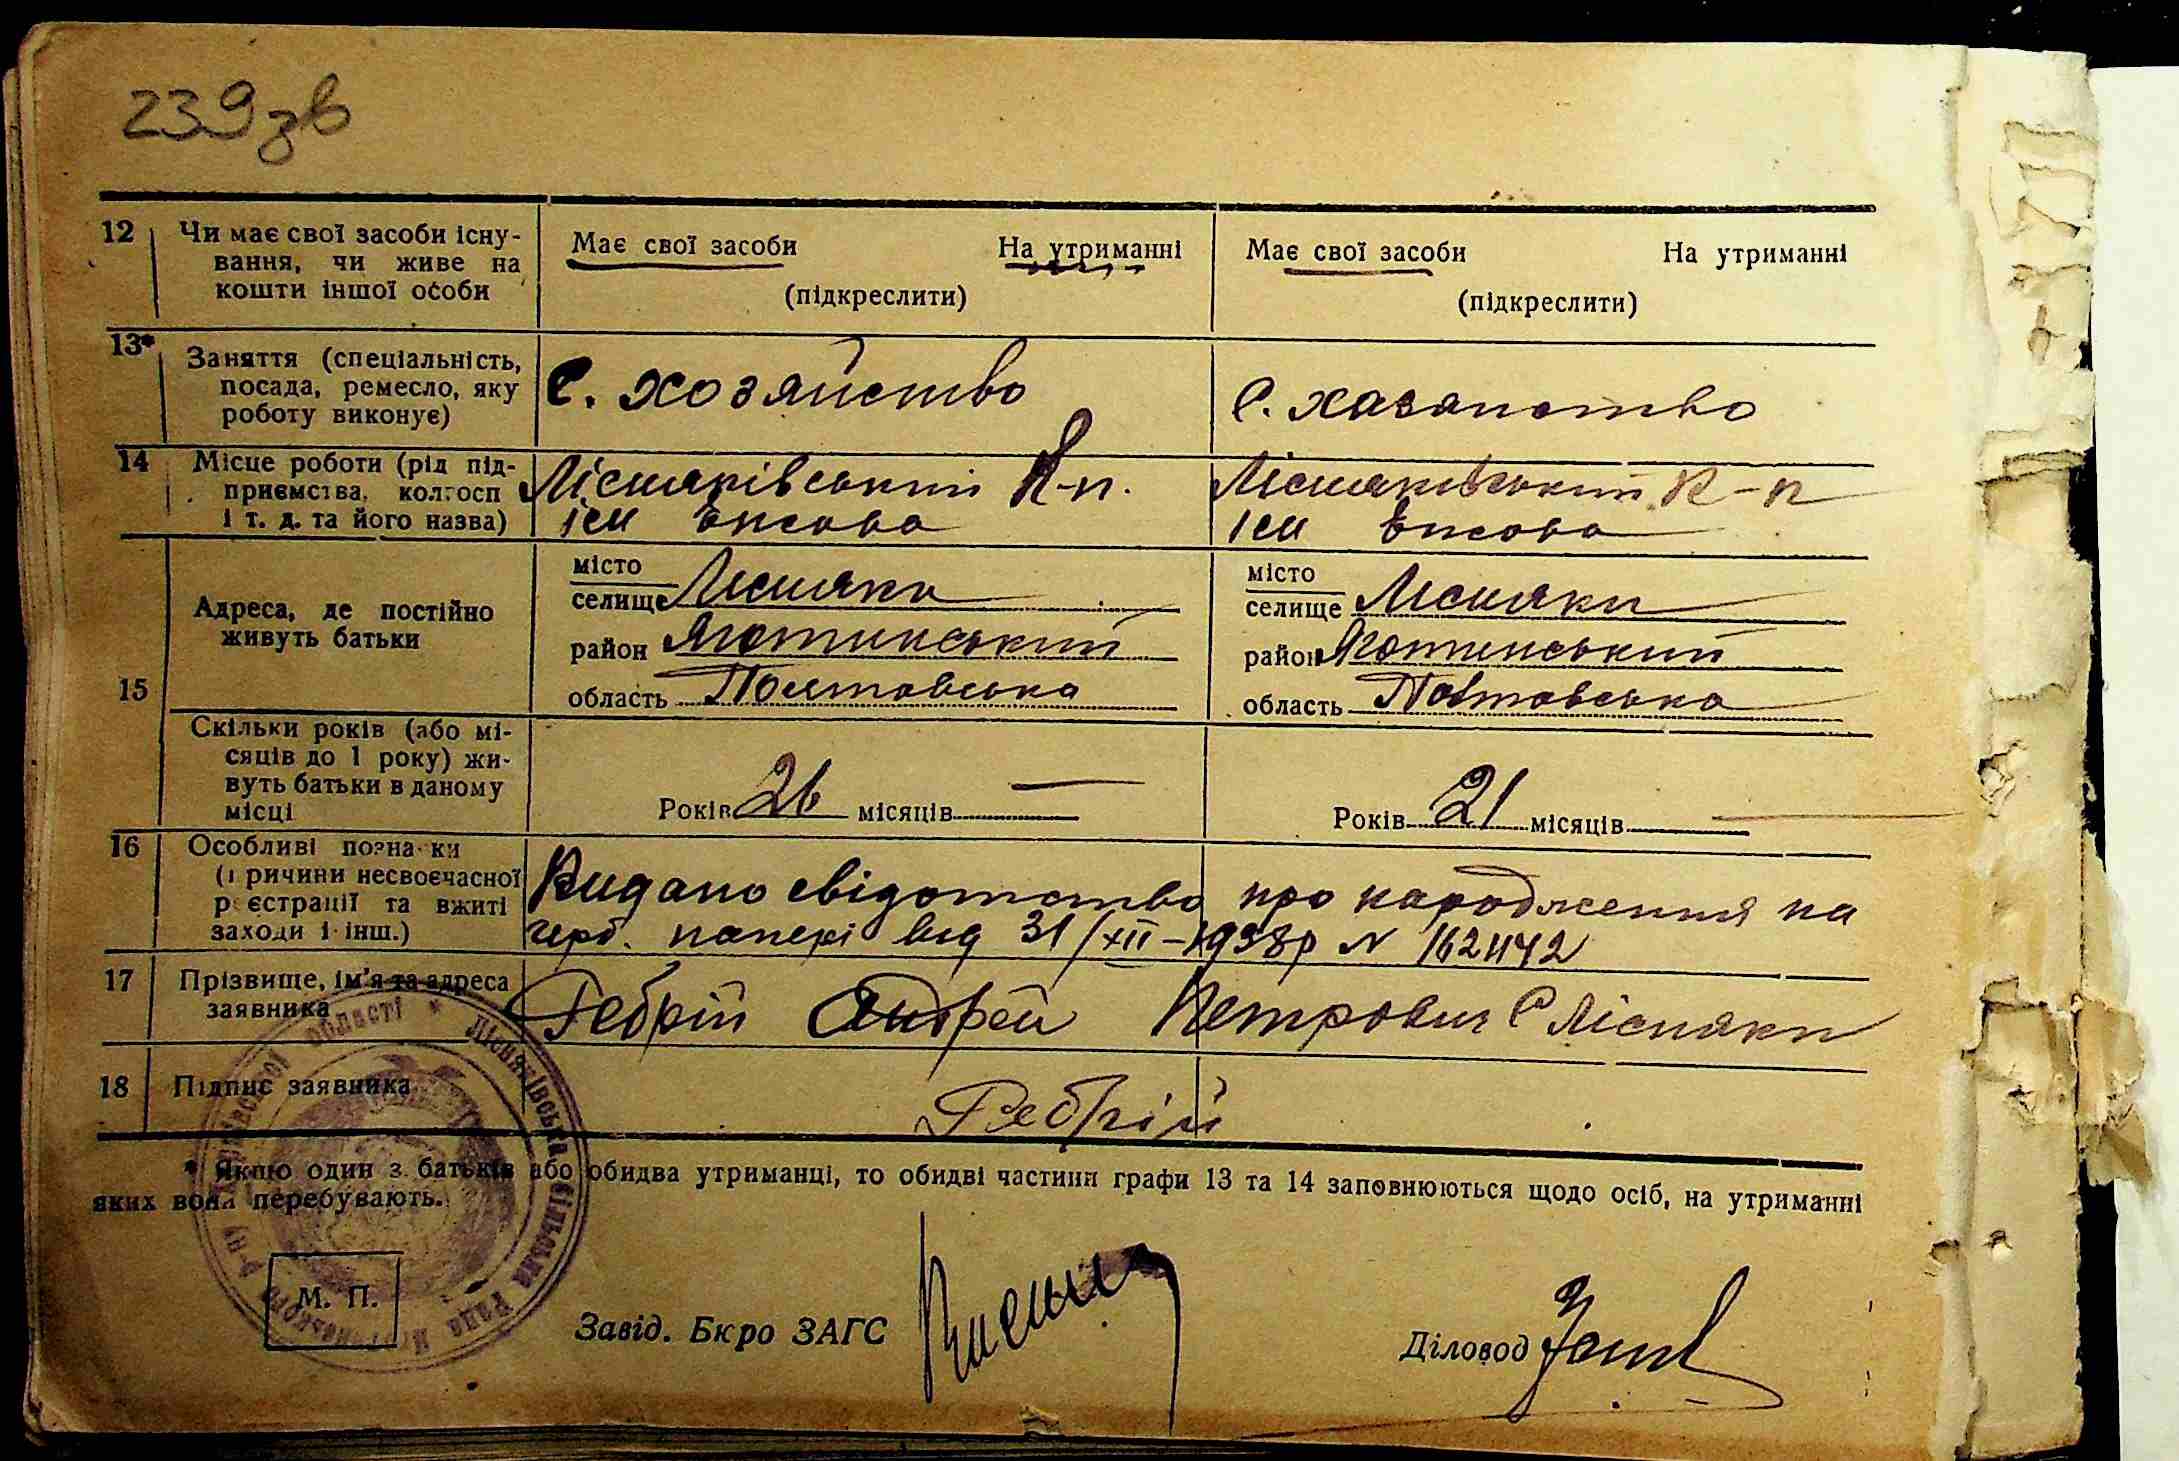 239 зв
12 Чи має свої засоби існу-
вання, чи живе на
кошти іншої особи
Має свої засоби На утриманні
(підкреслити)
Має свої засоби На утриманні
(підкреслити)
13* Заняття (спеціальність,
посада, ремесло, яку
роботу виконує)
С. хозяйство
С. хазяпство
14 Місце роботи (рід під-
приємства, колгосп
і т. д. та його назва)
Лісняківський К-п.
ім
Лісняківський К-п
ім
15 Адреса, де постійно
живуть батьки
місто
селище Лісняки
район Яготинський
область Полтовська
місто
селище Лісняки
район Яготинський
область Повтовська
Скільки років (або мі-
сяців до 1 року) жи-
вуть батьки в даному
місці
Років 26 місяців —
Років 21 місяців —
16 Особливі позначки
(причини несвоєчасної
реєстрації та вжиті
заходи і інш.)
Видано свідотство про народження на
герб. папері від 31/XII-1938р N 162442
17 Прізвище, ім'я та адреса
заявника
Гебрій Андрей Петрович С Лісняки
18 Підпис заявника
Гебрій
* Якщо один з батьків або обидва утриманці, то обидві частини графи 13 та 14 заповнюються щодо осіб, на утриманні
яких вони перебувають.
М. П.
Завід. Бюро ЗАГС
Діловод
області * Лісняківська сільська Рада